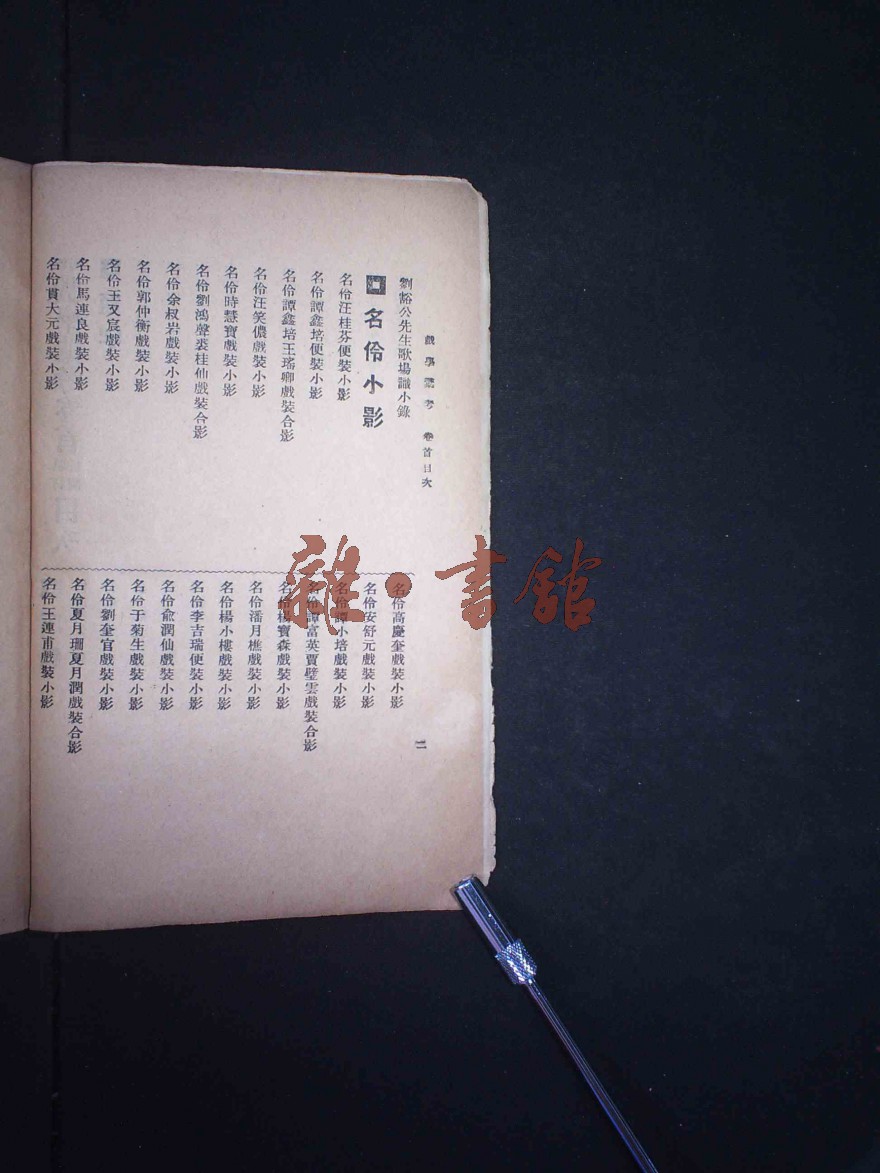 戲學彙考 卷首目次
二
劉豁公先生歌場識小錄
名伶小影
名伶汪桂芬便裝小影
名伶譚鑫培便裝小影
名伶譚鑫培王瑤卿戲裝合影
名伶汪笑儂戲裝小影
名伶時慧寶戲裝小影
名伶劉鴻聲裘桂仙戲裝合影
名伶余叔岩戲裝小影
名伶郭仲衡戲裝小影
名伶王又宸戲裝小影
名伶馬連良戲裝小影
名伶貫大元戲裝小影
名伶高慶奎戲裝小影
名伶安舒元戲裝小影
名伶譚小培戲裝小影
名伶譚富英賈璧雲戲裝合影
名伶楊寶森戲裝小影
名伶潘月樵戲裝小影
名伶楊小樓戲裝小影
名伶李吉瑞便裝小影
名伶俞潤仙戲裝小影
名伶于菊生戲裝小影
名伶劉奎官戲裝小影
名伶夏月珊夏月潤戲裝合影
名伶王蓮甫戲裝小影
雜·書館